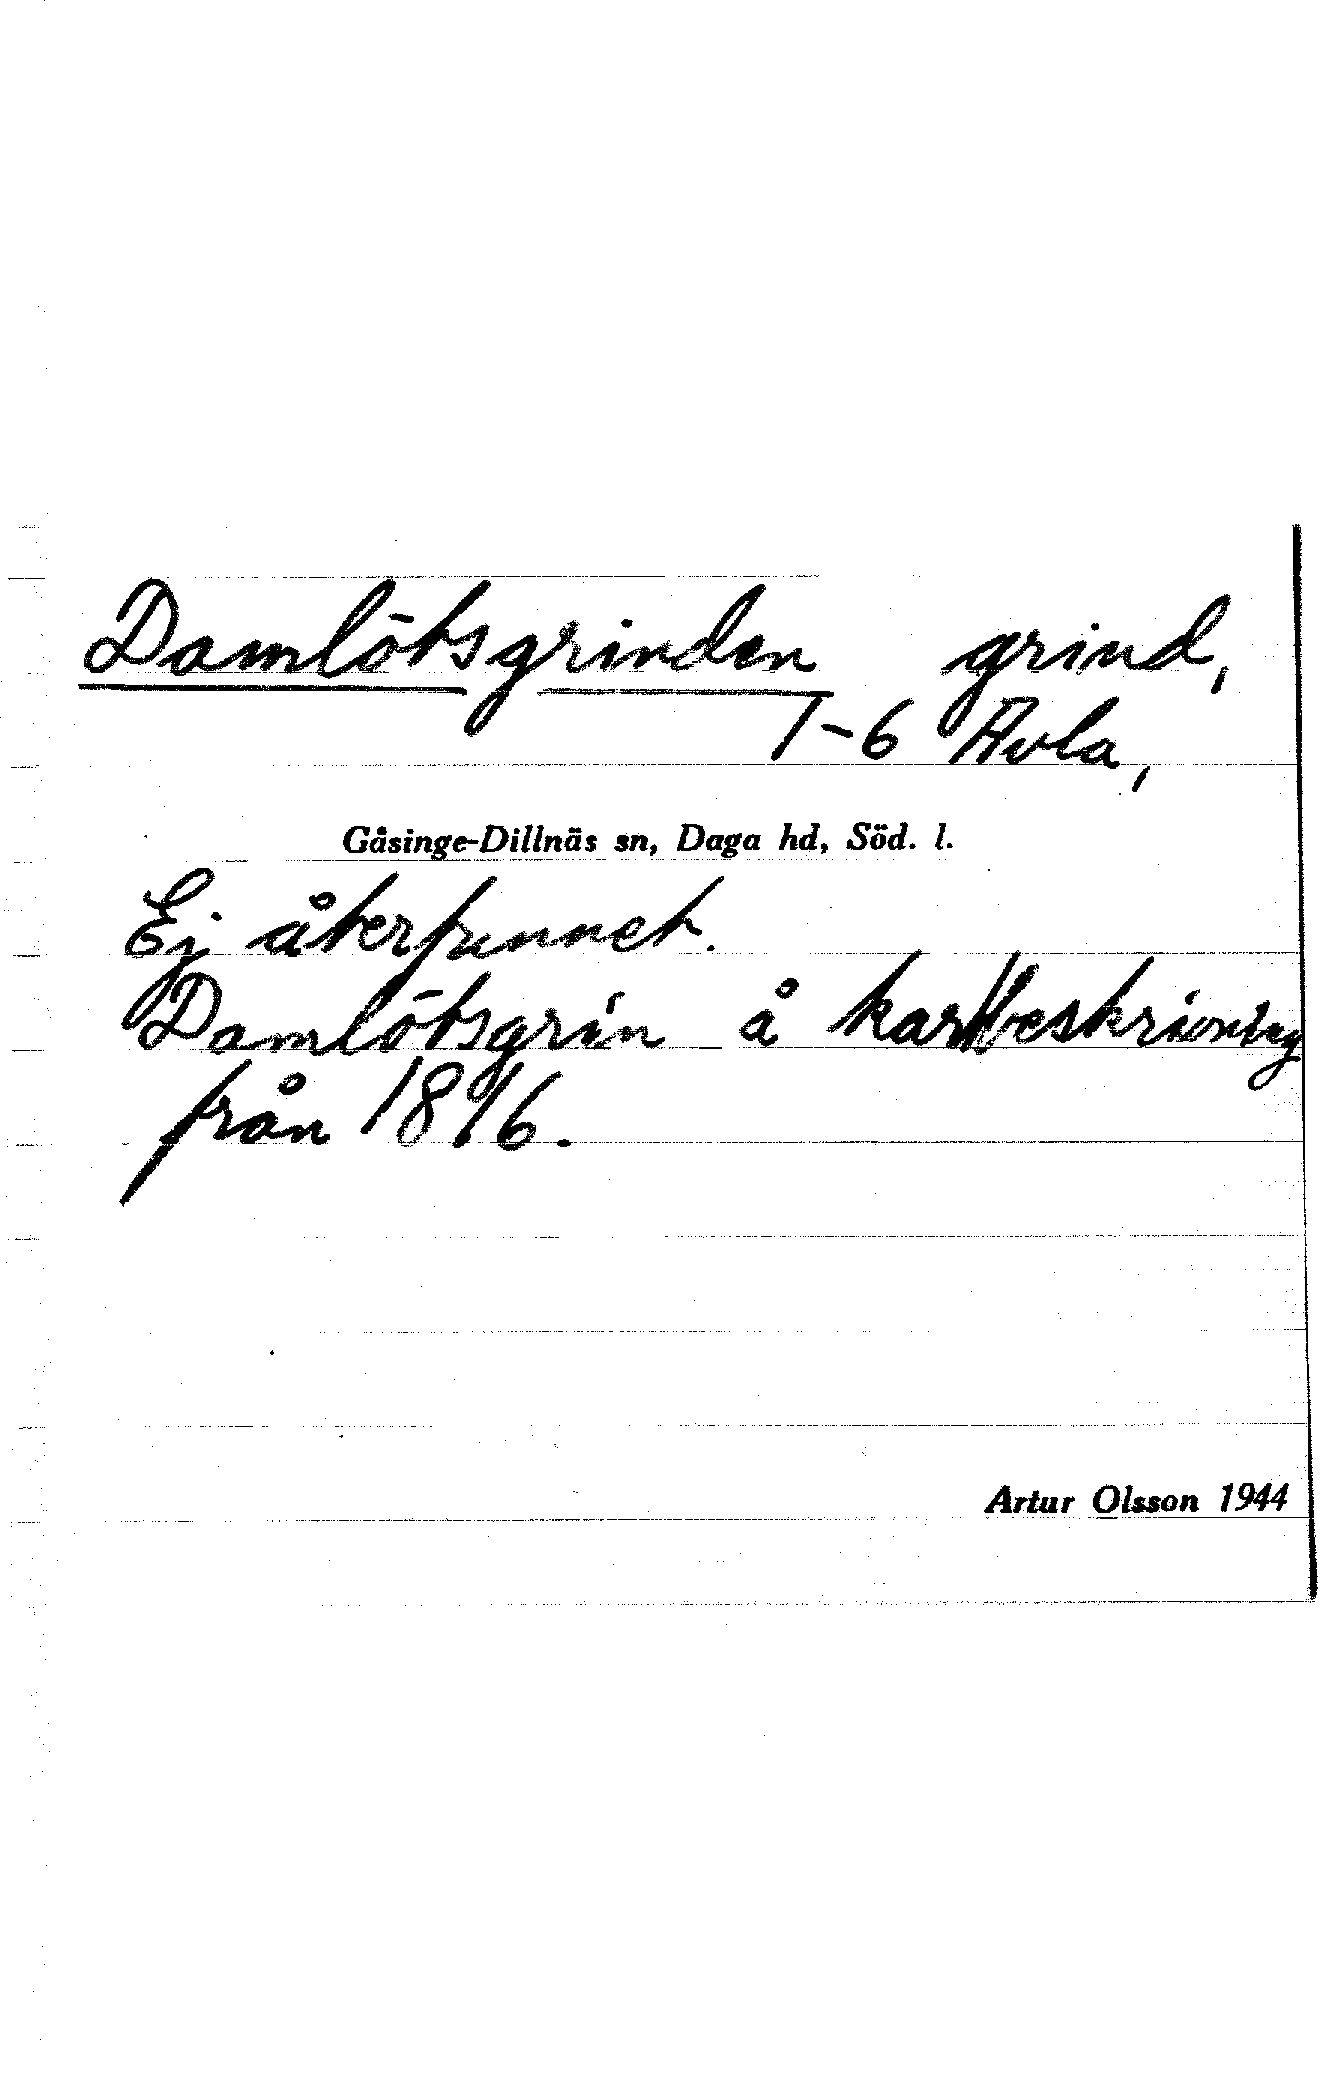 Damlötsgrinden grind,
1-6 Avla,
Gåsinge-Dillnäs sn, Daga hd, Söd. l.
Ej återfunnet.
Damlötsgrin å kartbeskrivning
från 1896.
Artur Olsson 1944